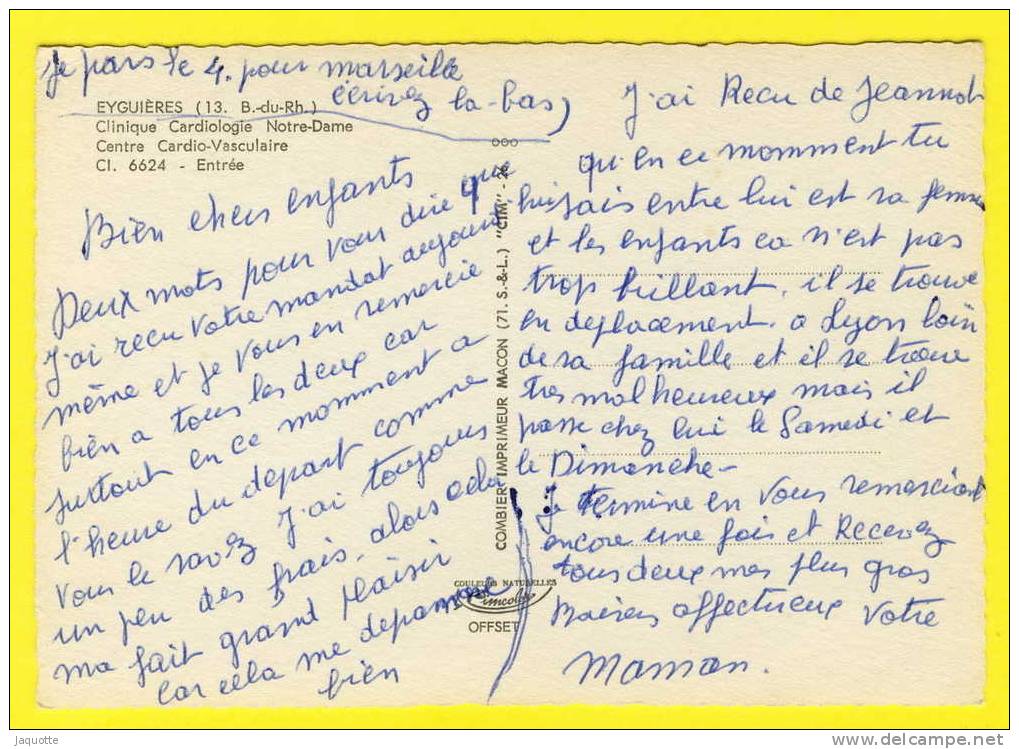 Je pars le 4. pour marseille
écrivez la-bas)
EYGUIÈRES (13. B.-du-Rh.)
Clinique Cardiologie Notre-Dame
Centre Cardio-Vasculaire
CI. 6624 - Entrée
Bien chers enfants
Deux mots pour vous dire que
J'ai recu votre mandat aujourd
même et je vous en remercie
bien a tous les deux car
surtout en ce momment a
l'heure du depart comme
vous le savez J'ai toujours
un peu des frais. alors cela
ma fait grand plaisir
car cela me depanne
bien
COMBIER IMPRIMEUR MACON (71. S.-&-L.) "CIM" - 26
COULEURS NATURELLES
Cimcolor
OFFSET
J'ai Recu de Jeannot
qu'en ce momment tu
sais entre lui est sa femme
et les enfants ca n'est pas
trop brillant. il se trouve
en deplacement. a Lyon loin
de sa famille et il se trouve
tres malheureux mais il
passe chez lui le Samedi et
le Dimanche -
Je termine en vous remerciant
encore une fois et Recevez
tous deux mes plus gros
Baisers affectueux votre
Maman.
jaquotte
www.delcampe.net